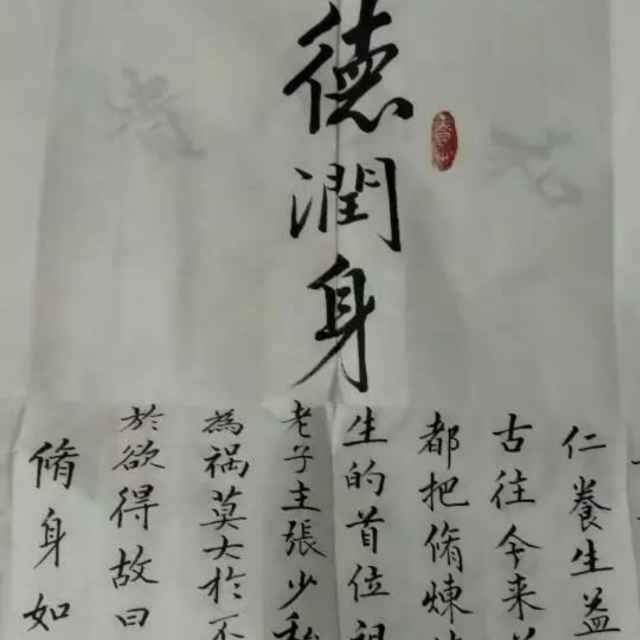 德潤身
仁養生益
古往今来
都把脩煉
生的首位
老子主張少私
為祸莫大於不
於欲得故曰
脩身如